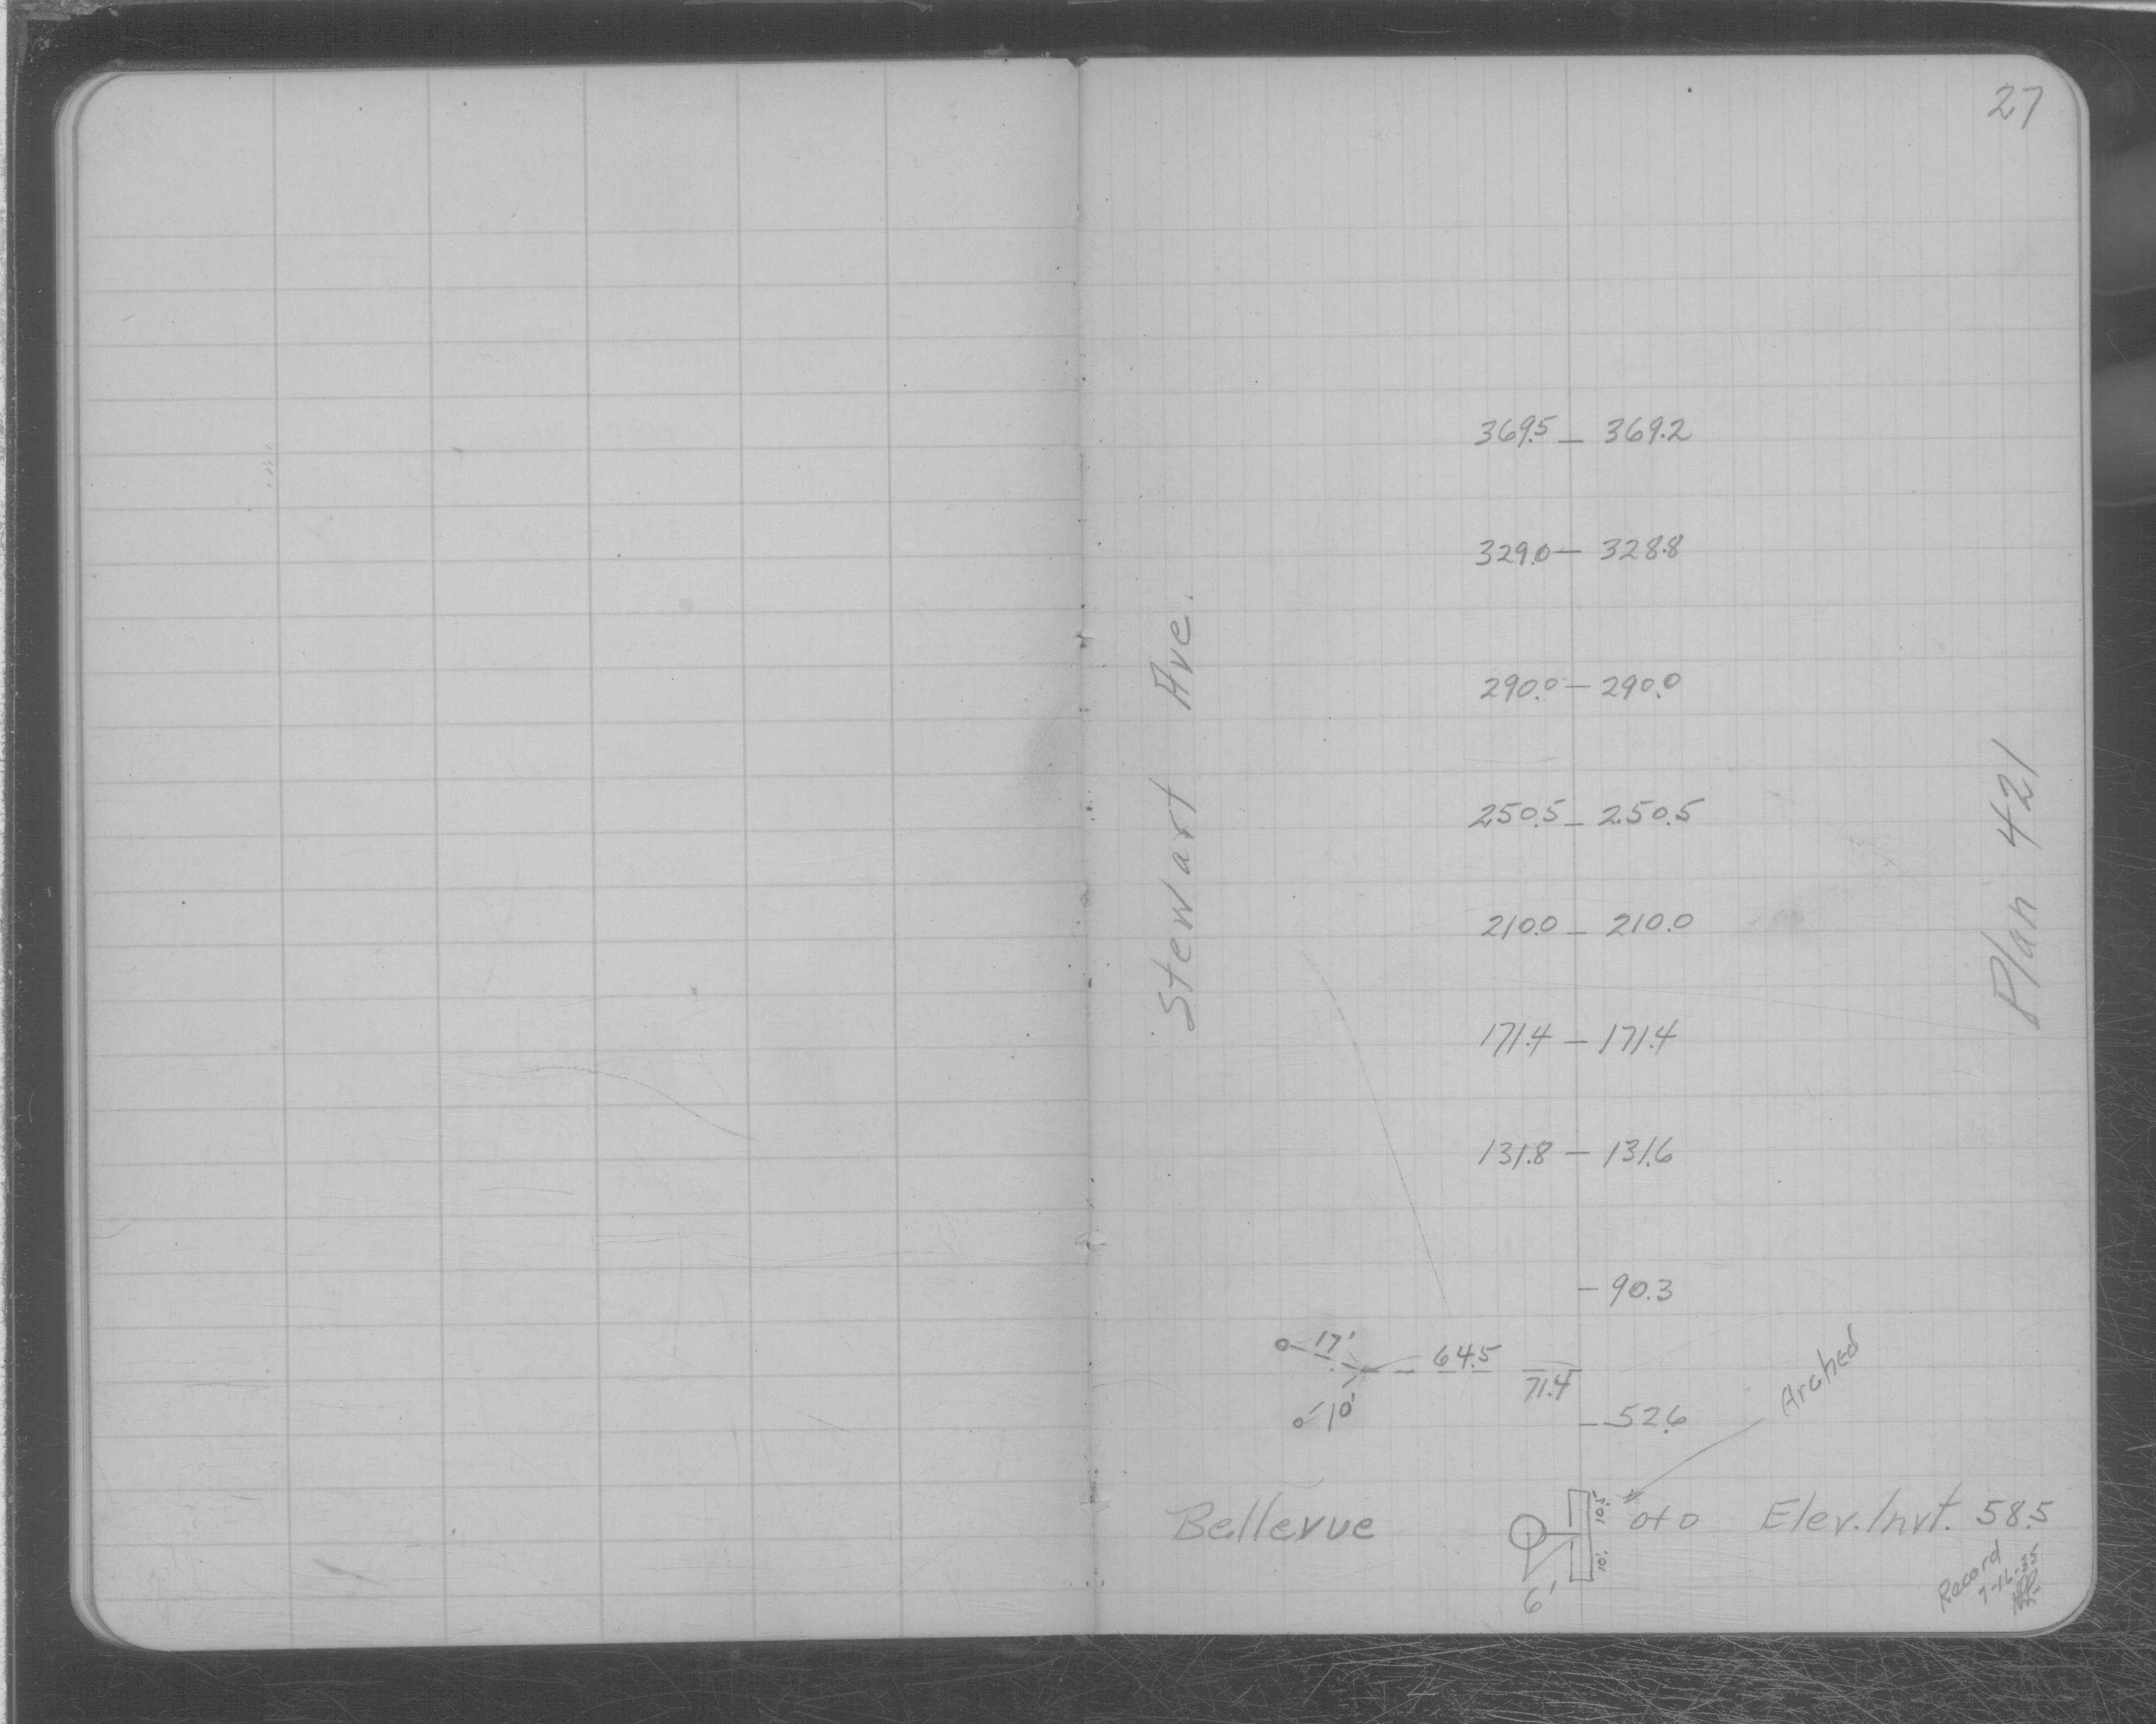 27
369.5 – 369.2
329.0 – 328.8
Stewart Ave.
290.0 – 290.0
250.5 – 250.5
Plan 421
210.0 – 210.0
171.4 – 171.4
131.8 – 131.6
– 90.3
17'
64.5
71.4
10'
– 52.6
Arched
Bellevue
6'
10.5'
10'.
0+0
Elev. Invt. 58.5
Record
7-16-35